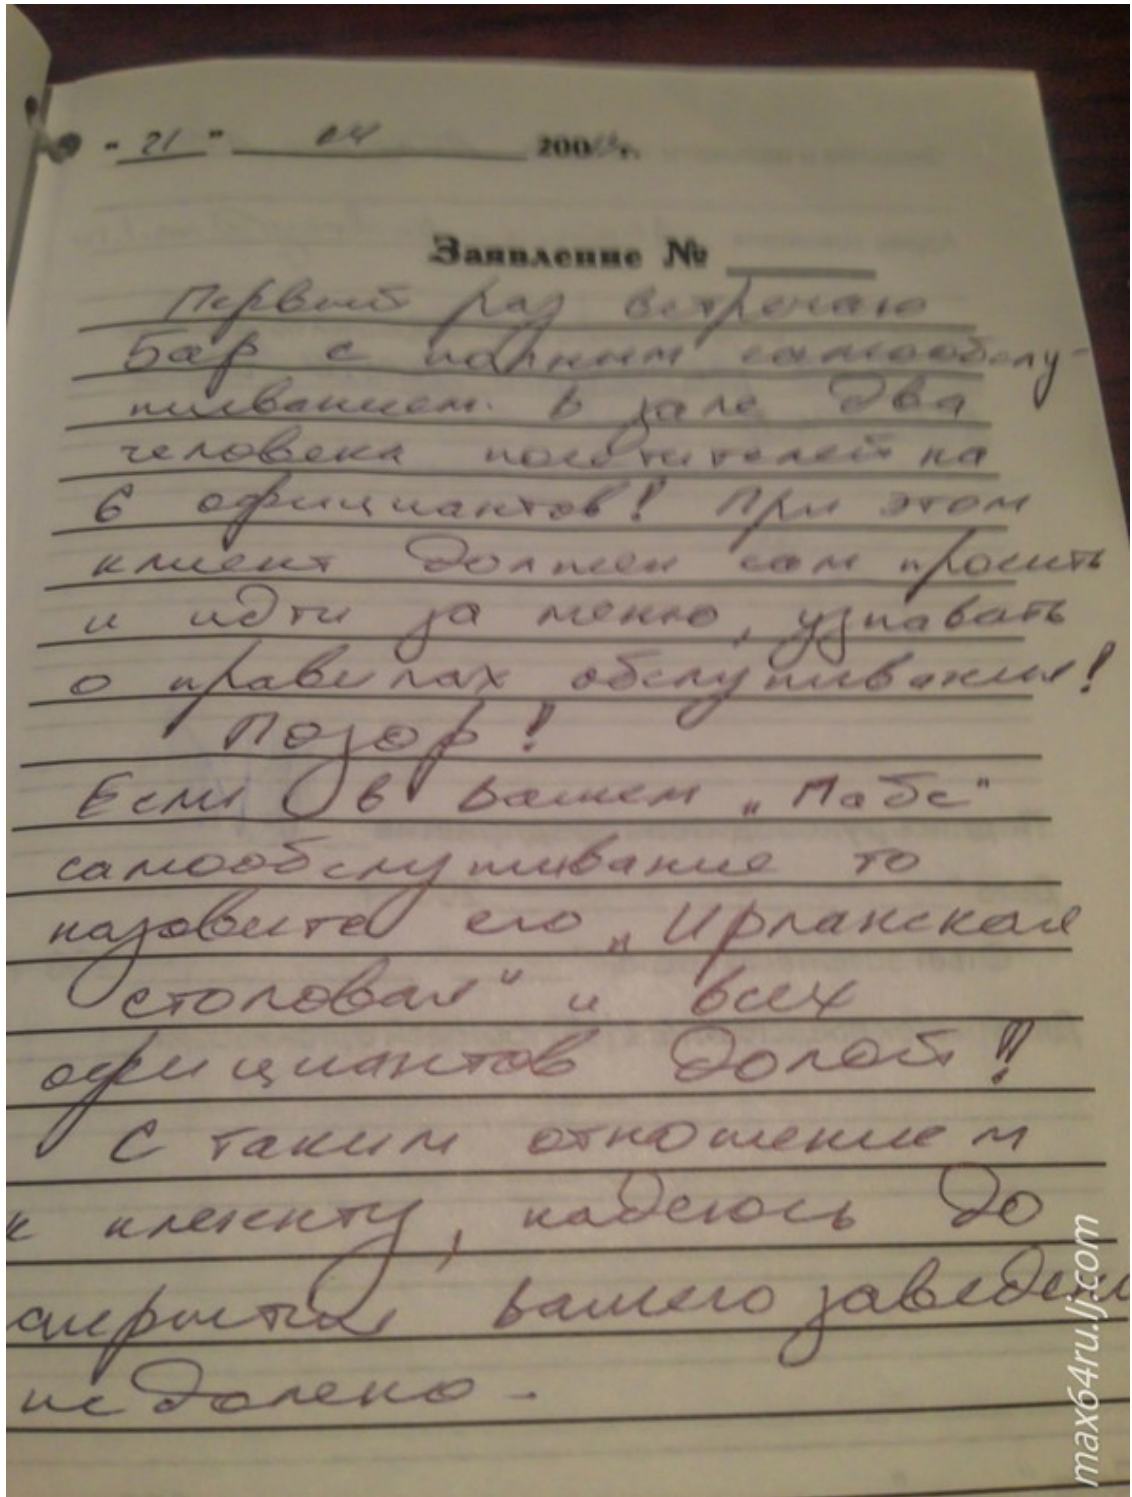 "21" 04 200 г.
Заявление №
Первый раз встречаю
Бар с полным самообслу-
живанием. В зале два
человека посетителей на
6 официантов! При этом
клиент должен сам просить
и идти за меню, узнавать
о правилах обслуживания!
Позор!
Если в вашем "Пабе"
самообслуживание то
назовите его "Ирланская
столовая" и всех
официантов долой!!
С таким отношением
к клиенту, надеюсь до
закрытия вашего заведен
не далеко.
max64ru.lj.com